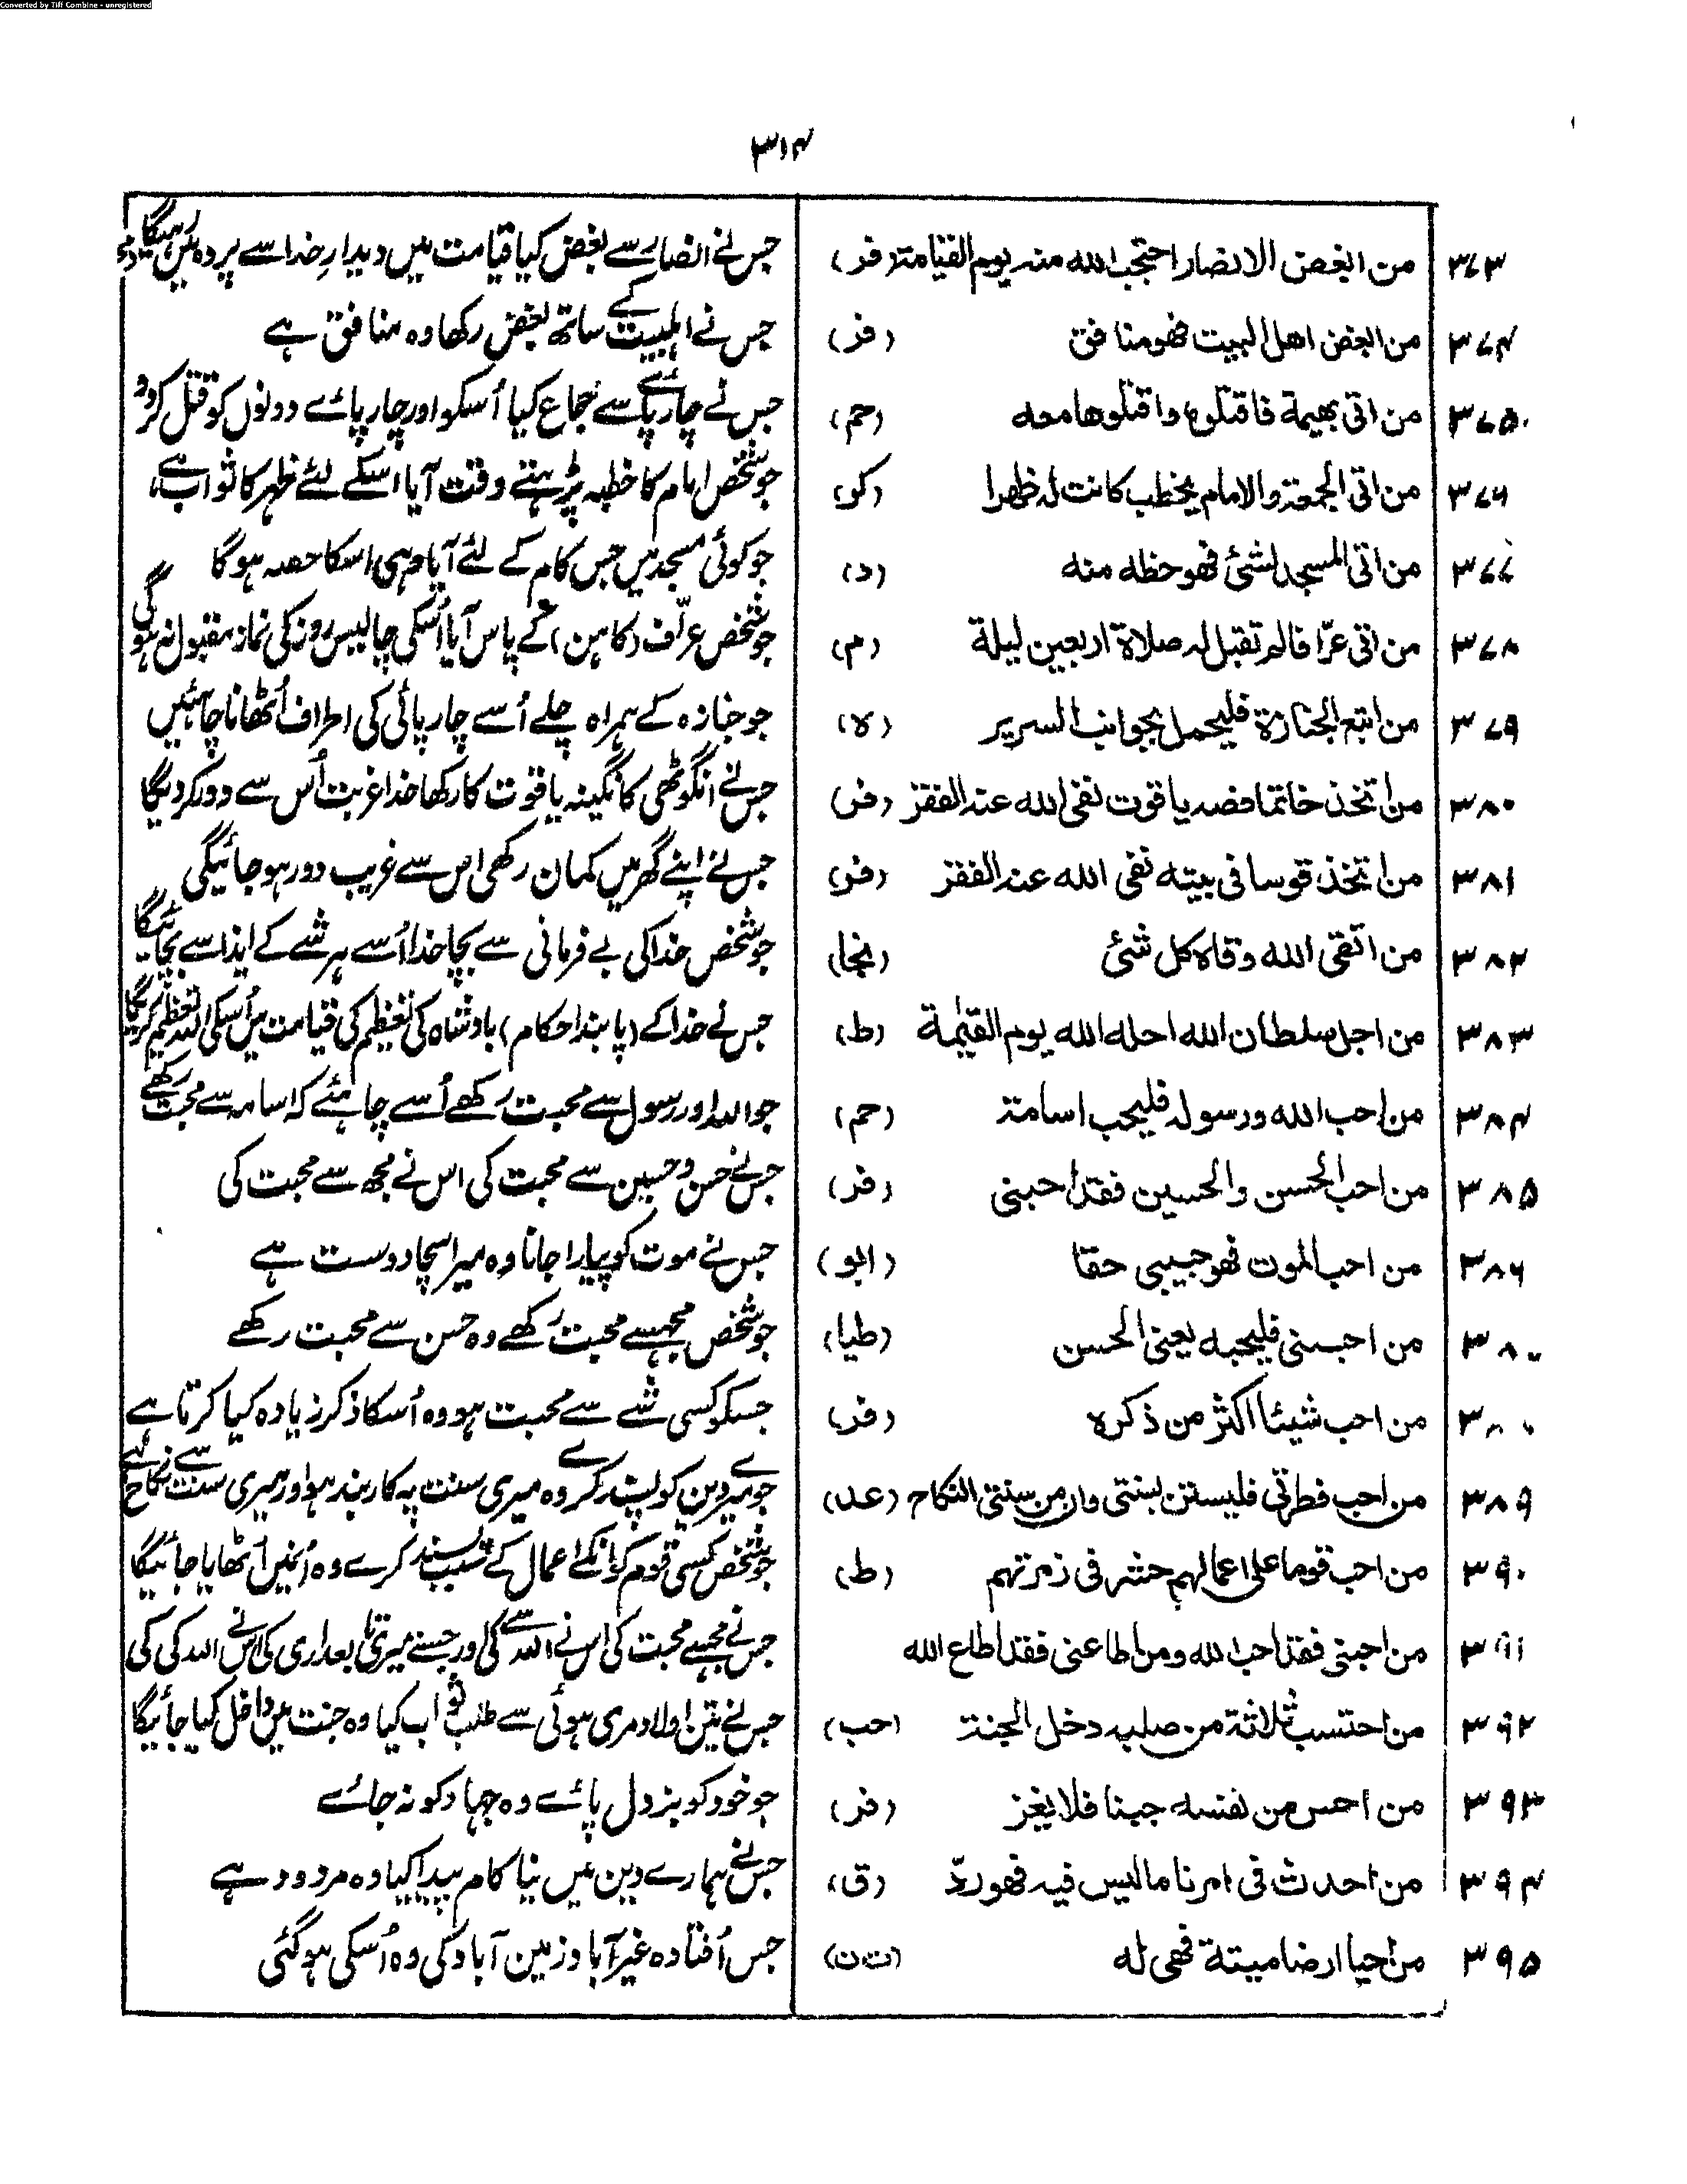 Converted by Tiff Combine - unregistered
۳۱۴
۳۷۳ من ابغض الانصار احتجب الله منه يوم القيامة (فر) جس نے انصار سے بغض کیا قیامت میں دیدارِ خدا سے پردہ میں رہیگا
۳۷۴ من ابغض اهل البيت فهو منافق (فر) جس نے اہلبیت کے ساتھ بغض رکھا وہ منافق ہے
۳۷۵ من اتى بهيمة فاقتلوه واقتلوها معه (حم) جس نے چارپائے سے جماع کیا اُسکو اور چارپائے دونوں کو قتل کردو
۳۷۶ من اتى الجمعة والامام يخطب كانت له ظهرا (كو) جو شخص امام کا خطبہ پڑہتے وقت آیا اسکے لئے ظہر کا ثواب ہے
۳۷۷ من اتى المسجد لشئ فهو حظه منه (د) جو کوئی مسجد میں جس کام کے لئے آیا وہی اسکا حصہ ہوگا
۳۷۸ من اتى عرّافا لم تقبل له صلاة اربعين ليلة (م) جو شخص عرّاف (کاہن) کے پاس آیا اُسکی چالیس روز کی نماز مقبول نہ ہوگی
۳۷۹ من اتبع الجنازة فليحمل بجوانب السرير (ه) جو جنازہ کے ہمراہ چلے اُسے چارپائی کی اطراف اُٹھانا چاہئیں
۳۸۰ من اتخذ خاتما فصه ياقوت نفى الله عنه الفقر (فر) جس نے انگوٹھی کا نگینہ یاقوت کا رکھا خدا غربت اُس سے دور کردیگا
۳۸۱ من اتخذ قوسا فى بيته نفى الله عنه الفقر (فر) جس نے اپنے گھر میں کمان رکھی اس سے غریب دور ہوجائیگی
۳۸۲ من اتقى الله وقاه كل شئ (نجا) جو شخص خدا کی بے فرمانی سے بچا خدا اُسے ہر شے کے ایذا سے بچائیگا
۳۸۳ من اجل سلطان الله احله الله يوم القيٰمة (ط) جس نے خدا کے (پابند احکام) بادشاہ کی تعظیم کی قیامت میں اُسکی اللہ تعظیم کریگا
۳۸۴ من احب الله ورسوله فليحب اسامة (حم) جو اللہ اور رسول سے محبت رکھے اُسے چاہئے کہ اسامہ سے محبت رکھے
۳۸۵ من احب الحسن والحسين فقد احبنى (فر) جس نے حسن و حسین سے محبت کی اس نے مجھ سے محبت کی
۳۸۶ من احب الموت فهو حبيبى حقا (ابو) جس نے موت کو پیارا جانا وہ میرا سچا دوست ہے
۳۸ من احبنى فليحبه يعنى الحسن (طيا) جو شخص مجہسے محبت رکھے وہ حسن سے محبت رکھے
۳۸ من احب شيئا اكثر من ذكره (فر) جسکو کسی شے سے محبت ہو وہ اُسکا ذکر زیادہ کیا کرتا ہے
۳۸۹ من احب فطرتى فليستن بسنتى وان من سنتى النكاح (عد) جو میرے دین کو پسند کرے وہ میری سنت پہ کاربند ہو اور میری سنت سے نکاح ہے
۳۹۰ من احب قوما على اعمالهم حشر فى زمرتهم (ط) جو شخص کسی قوم کو انکے اعمال کے سبب پسند کرے وہ اُنہیں اُٹھایا جائیگا
۳۹۱ من احبنى فقد احب الله ومن اطاعنى فقد اطاع الله جس نے مجہسے محبت کی اس نے اللہ سے کی اور جسنے میری تابعداری کی اس نے اللہ کی کی
۳۹۲ من احتسب ثلاثة من صلبه دخل الجنة (حب) جس نے تین اولاد مری ہوئی سے طلب ثواب کیا وہ جنت میں داخل کیا جائیگا
۳۹۳ من احس من نفسه جبنا فلا يغز (فر) جو خود کو بزدل پائے وہ جہاد کو نہ جائے
۳۹۴ من احدث فى امرنا ما ليس فيه فهو ردّ (ق) جس نے ہمارے دین میں نیا کام پیدا کیا وہ مردود ہے
۳۹۵ من احيا ارضا ميتة فهى له (ت ن) جس اُفتادہ غیر آباد زمین آباد کی وہ اُسکی ہوگئی